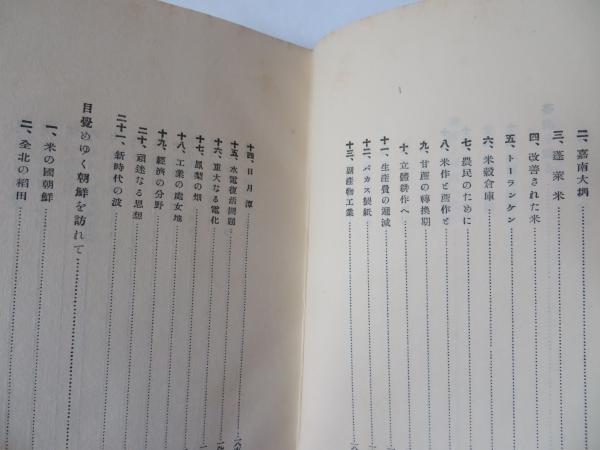 二、嘉南大圳
三、蓬萊米
四、改善された米
五、トーランケン
六、米穀倉庫
七、農民のために
八、米作と蔗作と
九、甘蔗の轉換期
十、立體耕作へ
十一、生產費の遞減
十二、バカス製紙
十三、副產物工業
十四、日月潭
十五、水電復活問題
十六、重大なる電化
十七、鳳梨の畑
十八、工業の處女地
十九、經濟の分野
二十、頑迷なる思想
二十一、新時代の波
目覺めゆく朝鮮を訪れて
一、米の國朝鮮
二、全北の稻田